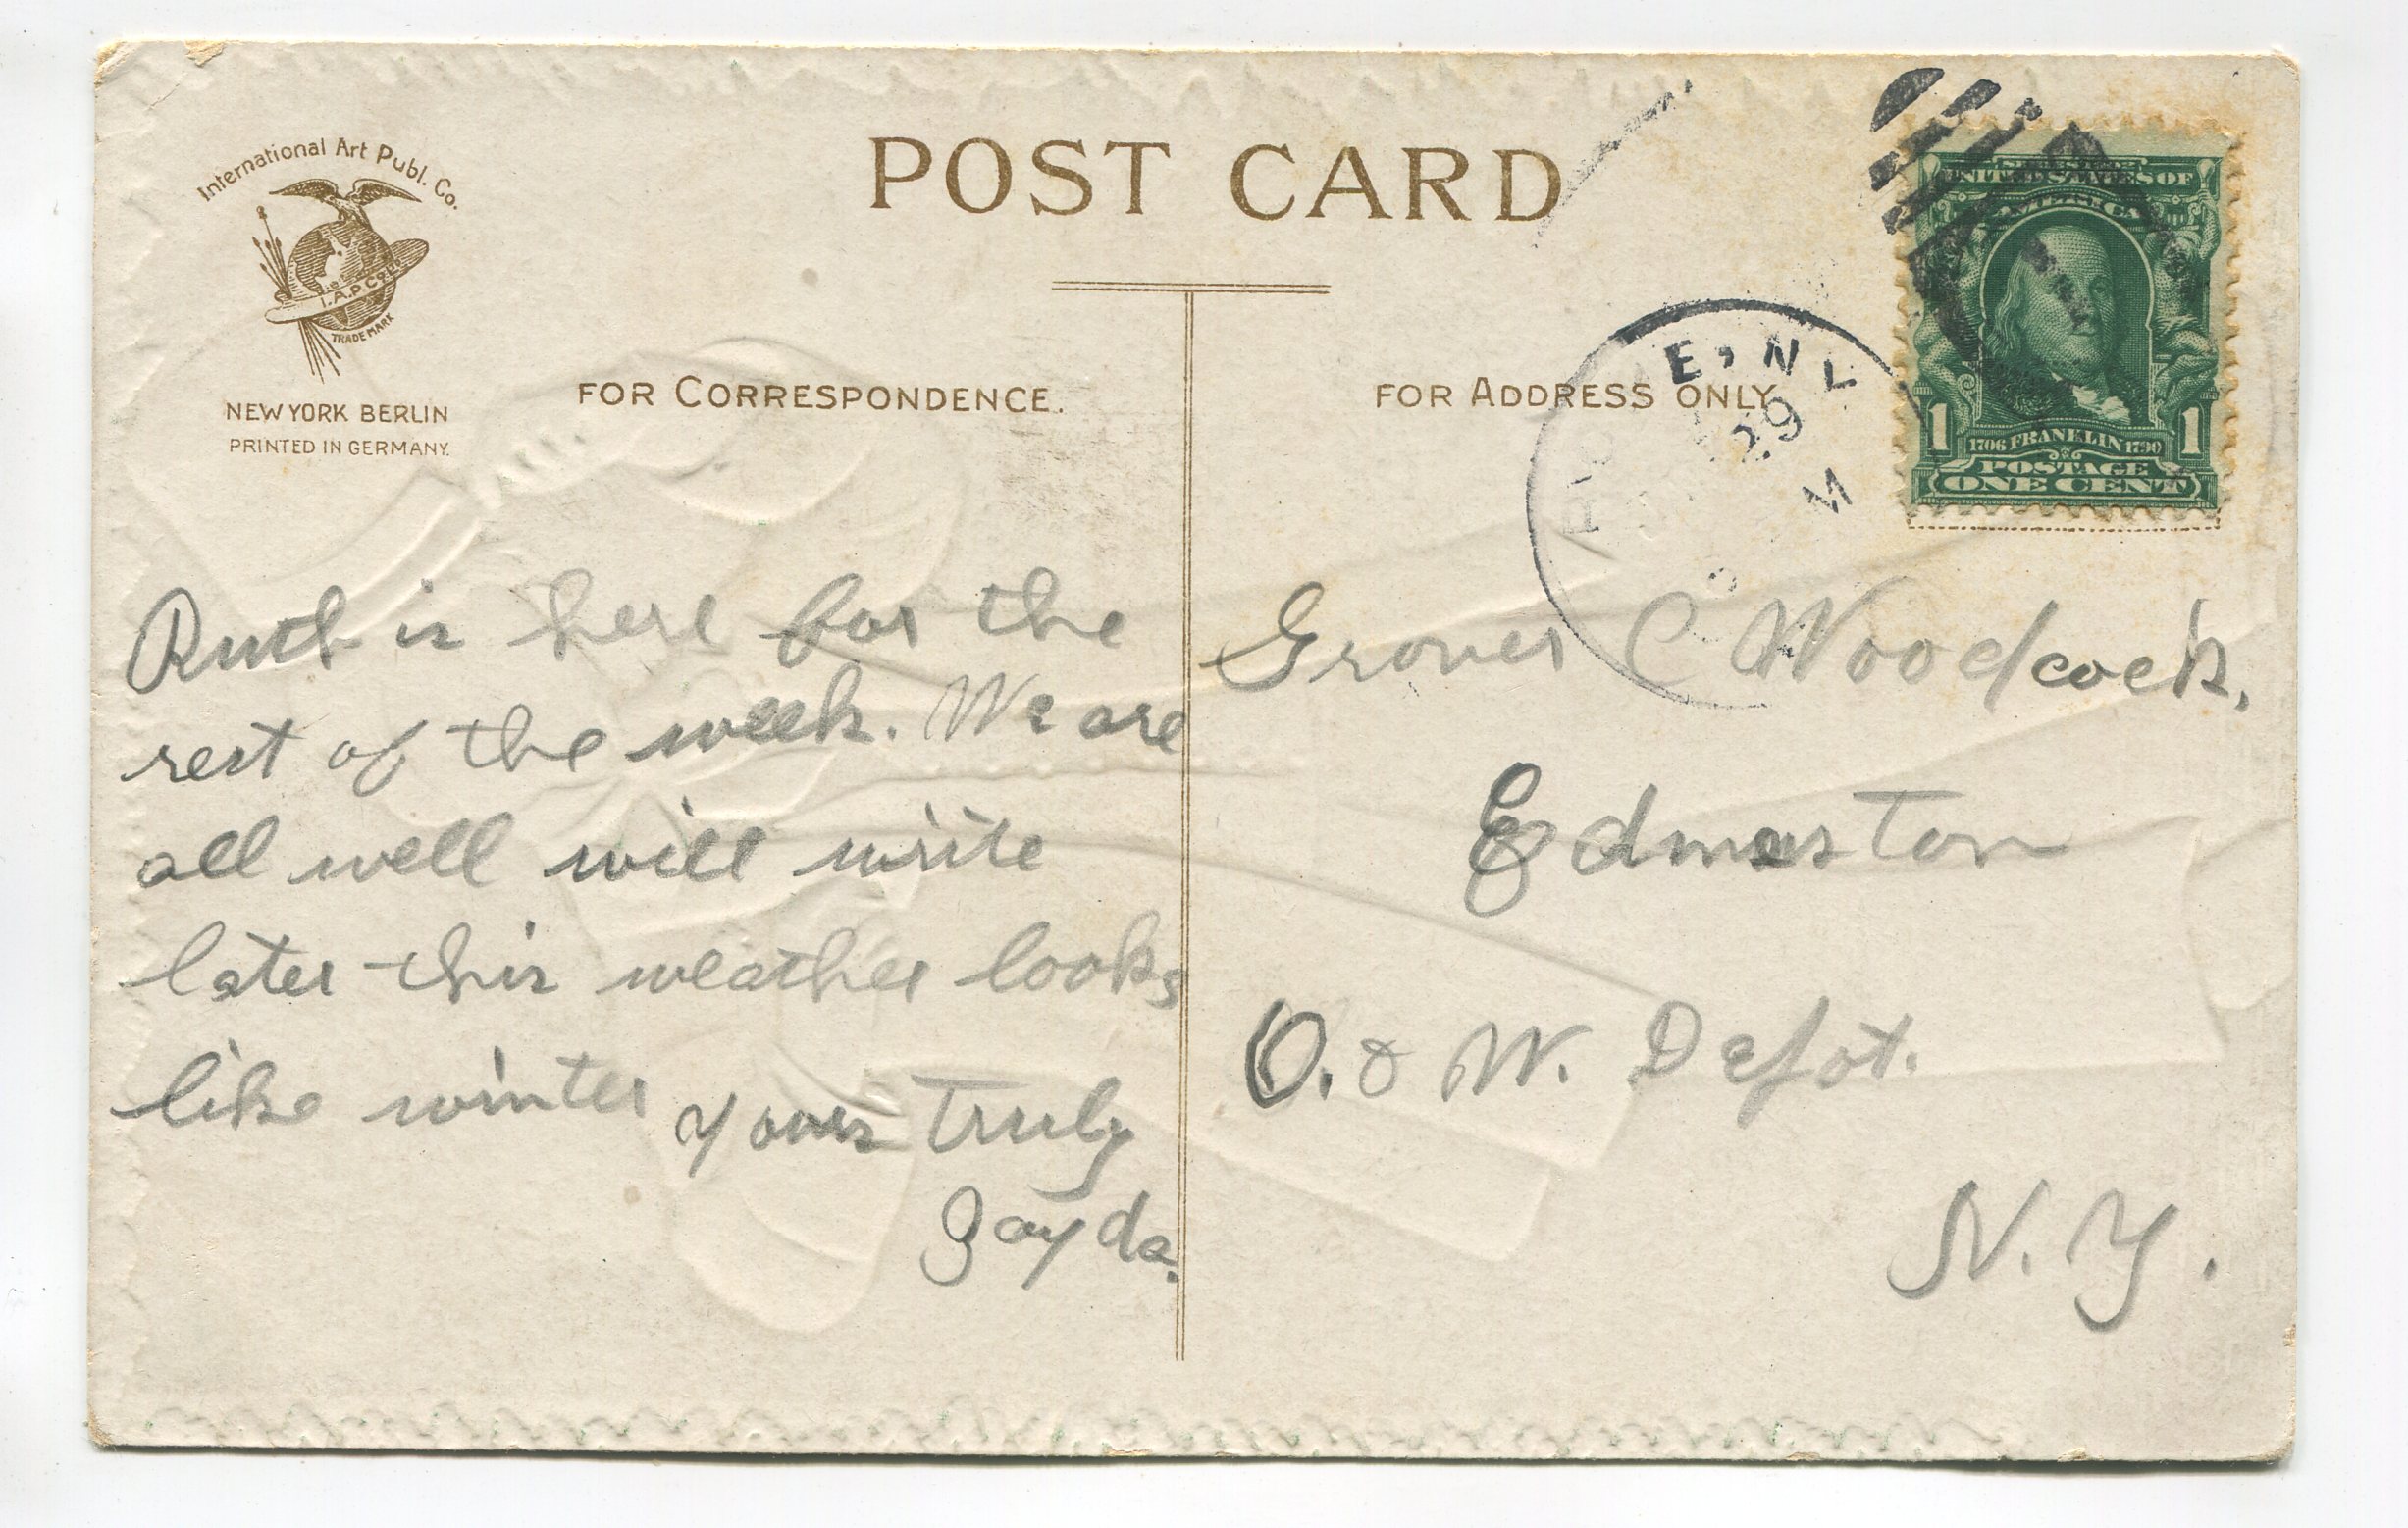 International Art Publ. Co.
I.A.P.CO.
TRADE MARK
NEW YORK BERLIN
PRINTED IN GERMANY.
POST CARD
FOR CORRESPONDENCE.
FOR ADDRESS ONLY
E, N Y
29
M
UNITED STATES OF
AMERICA
1 1
1706 FRANKLIN 1790
POSTAGE
ONE CENT
Ruth is here for the
rest of the week. We are
all well will write
later this weather looks
like winter yours truly
Grover C Woodcock.
Edmeston
O. & W. Depot.
N. Y.